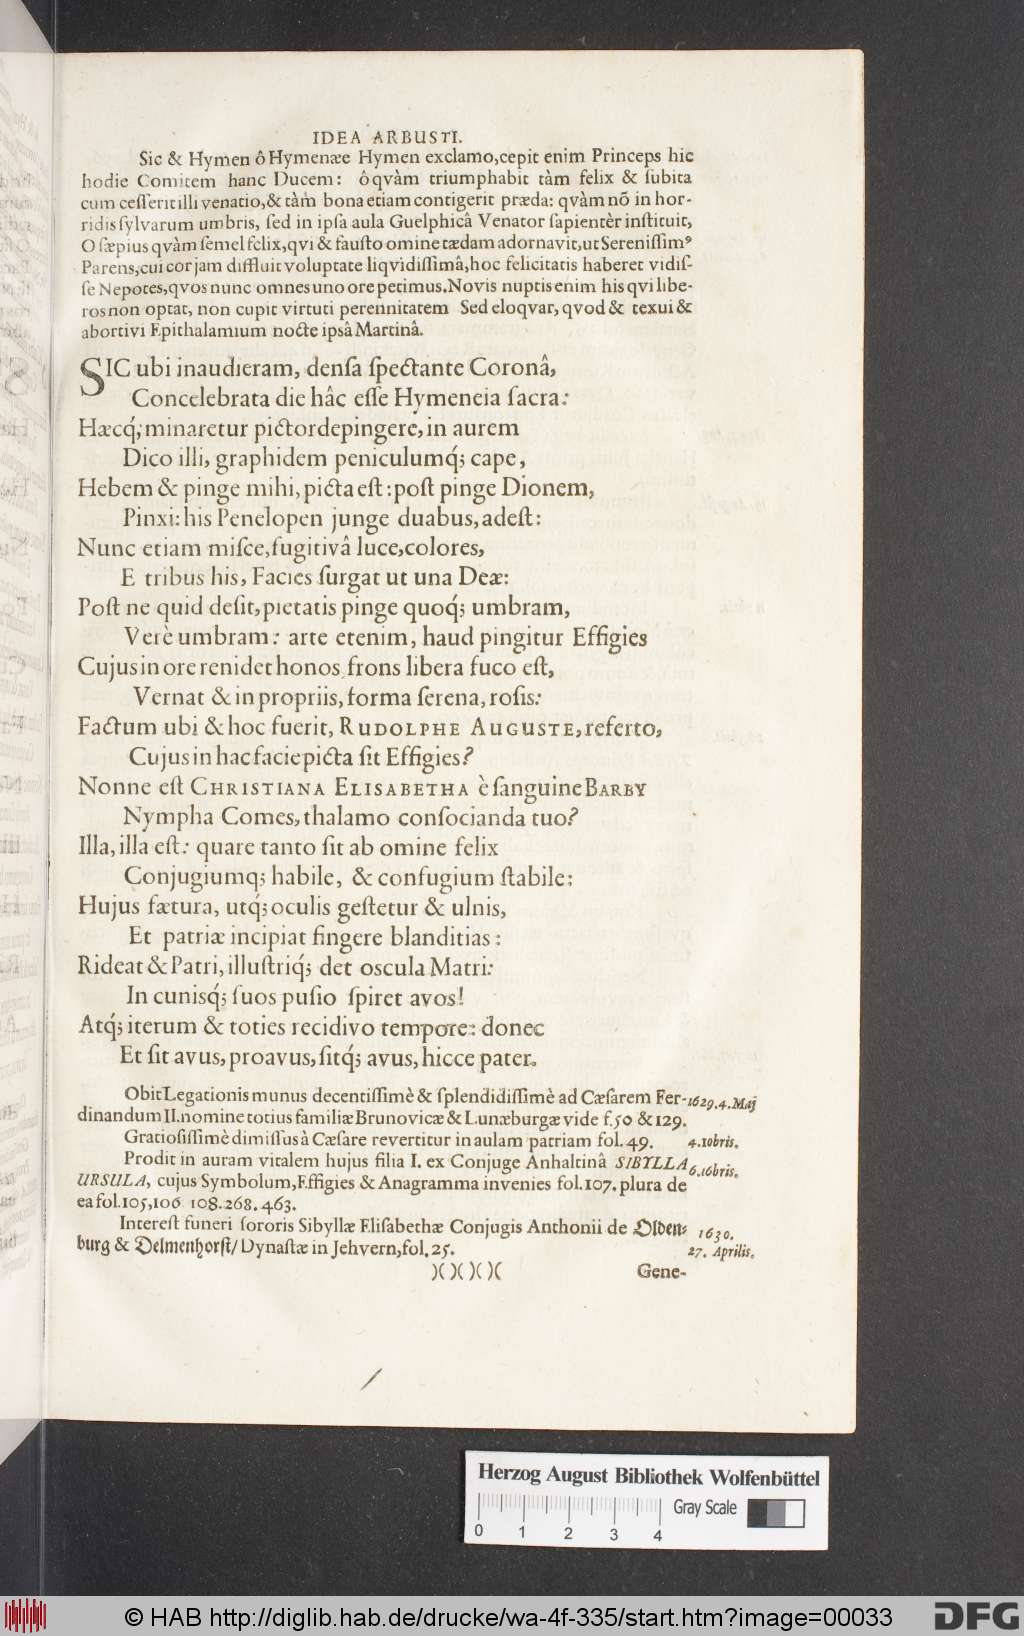 IDEA ARBUSTI.
Sic & Hymen ô Hymenæe Hymen exclamo, cepit enim Princeps hic
hodie Comitem hanc Ducem: ô qvàm triumphabit tàm felix & ſubita
cum ceſſerit illi venatio, & tàm bona etiam contigerit præda: qvàm nõ in hor-
ridis ſylvarum umbris, ſed in ipſa aula Guelphicâ Venator ſapientèr inſtituit,
O ſæpius qvàm ſemel felix, qvi & fauſto omine tædam adornavit, ut Sereniſſimꝰ
Parens, cui cor jam diffluit voluptate liqvidiſſimâ, hoc felicitatis haberet vidiſ-
ſe Nepotes, qvos nunc omnes uno ore petimus. Novis nuptis enim his qvi libe-
ros non optat, non cupit virtuti perennitatem Sed eloqvar, qvod & texui &
abortivi Epithalamium nocte ipsâ Martinâ.
SIC ubi inaudieram, denſa ſpectante Coronâ,
Concelebrata die hâc eſſe Hymeneia ſacra:
Hæcq́; minaretur pictor depingere, in aurem
Dico illi, graphidem peniculumq́; cape,
Hebem & pinge mihi, picta eſt: poſt pinge Dionem,
Pinxi: his Penelopen junge duabus, adeſt:
Nunc etiam miſce, fugitivâ luce, colores,
E tribus his, Facies ſurgat ut una Deæ:
Poſt ne quid deſit, pietatis pinge quoq́; umbram,
Verè umbram: arte etenim, haud pingitur Effigies
Cujus in ore renidet honos, frons libera fuco eſt,
Vernat & in propriis, forma ſerena, roſis:
Factum ubi & hoc fuerit, RUDOLPHE AUGUSTE, referto,
Cujus in hac facie picta ſit Effigies?
Nonne eſt CHRISTIANA ELISABETHA è ſanguine BARBY
Nympha Comes, thalamo conſocianda tuo?
Illa, illa eſt: quare tanto ſit ab omine felix
Conjugiumq; habile, & confugium ſtabile:
Hujus fætura, utq́; oculis geſtetur & ulnis,
Et patriæ incipiat fingere blanditias:
Rideat & Patri, illuſtriq́; det oscula Matri:
In cunisq́; ſuos puſio ſpiret avos!
Atq́; iterum & toties recidivo tempore: donec
Et ſit avus, proavus, ſitq́; avus, hicce pater.
Obit Legationis munus decentiſſimè & ſplendidiſſimè ad Cæſarem Fer- 1629. 4. Maj
dinandum II. nomine totius familiæ Brunovicæ & Lunæburgæ vide f. 50 & 129.
Gratioſiſſimè dimiſſus à Cæſare revertitur in aulam patriam fol. 49. 4. 10bris.
Prodit in auram vitalem hujus filia I. ex Conjuge Anhaltinâ SIBYLLA 6. 10bris.
URSULA, cujus Symbolum, Effigies & Anagramma invenies fol. 107. plura de
ea fol. 105, 106 108. 268. 463.
Intereſt funeri ſororis Sibyllæ Eliſabethæ Conjugis Anthonii de Olden- 1630.
burg & Delmenhorſt/ Dynaſtæ in Jehvern, fol. 25. 27. Aprilis.
)( )( )( )( Gene-
Herzog August Bibliothek Wolfenbüttel
Gray Scale
0 1 2 3 4
© HAB http://diglib.hab.de/drucke/wa-4f-335/start.htm?image=00033
DFG